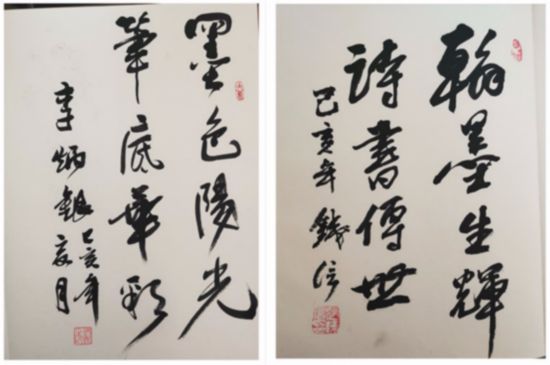 墨色陽光
筆底華彩
李炳銀 己亥年夏月
翰墨生輝
詩書傳世
己亥年 錢信